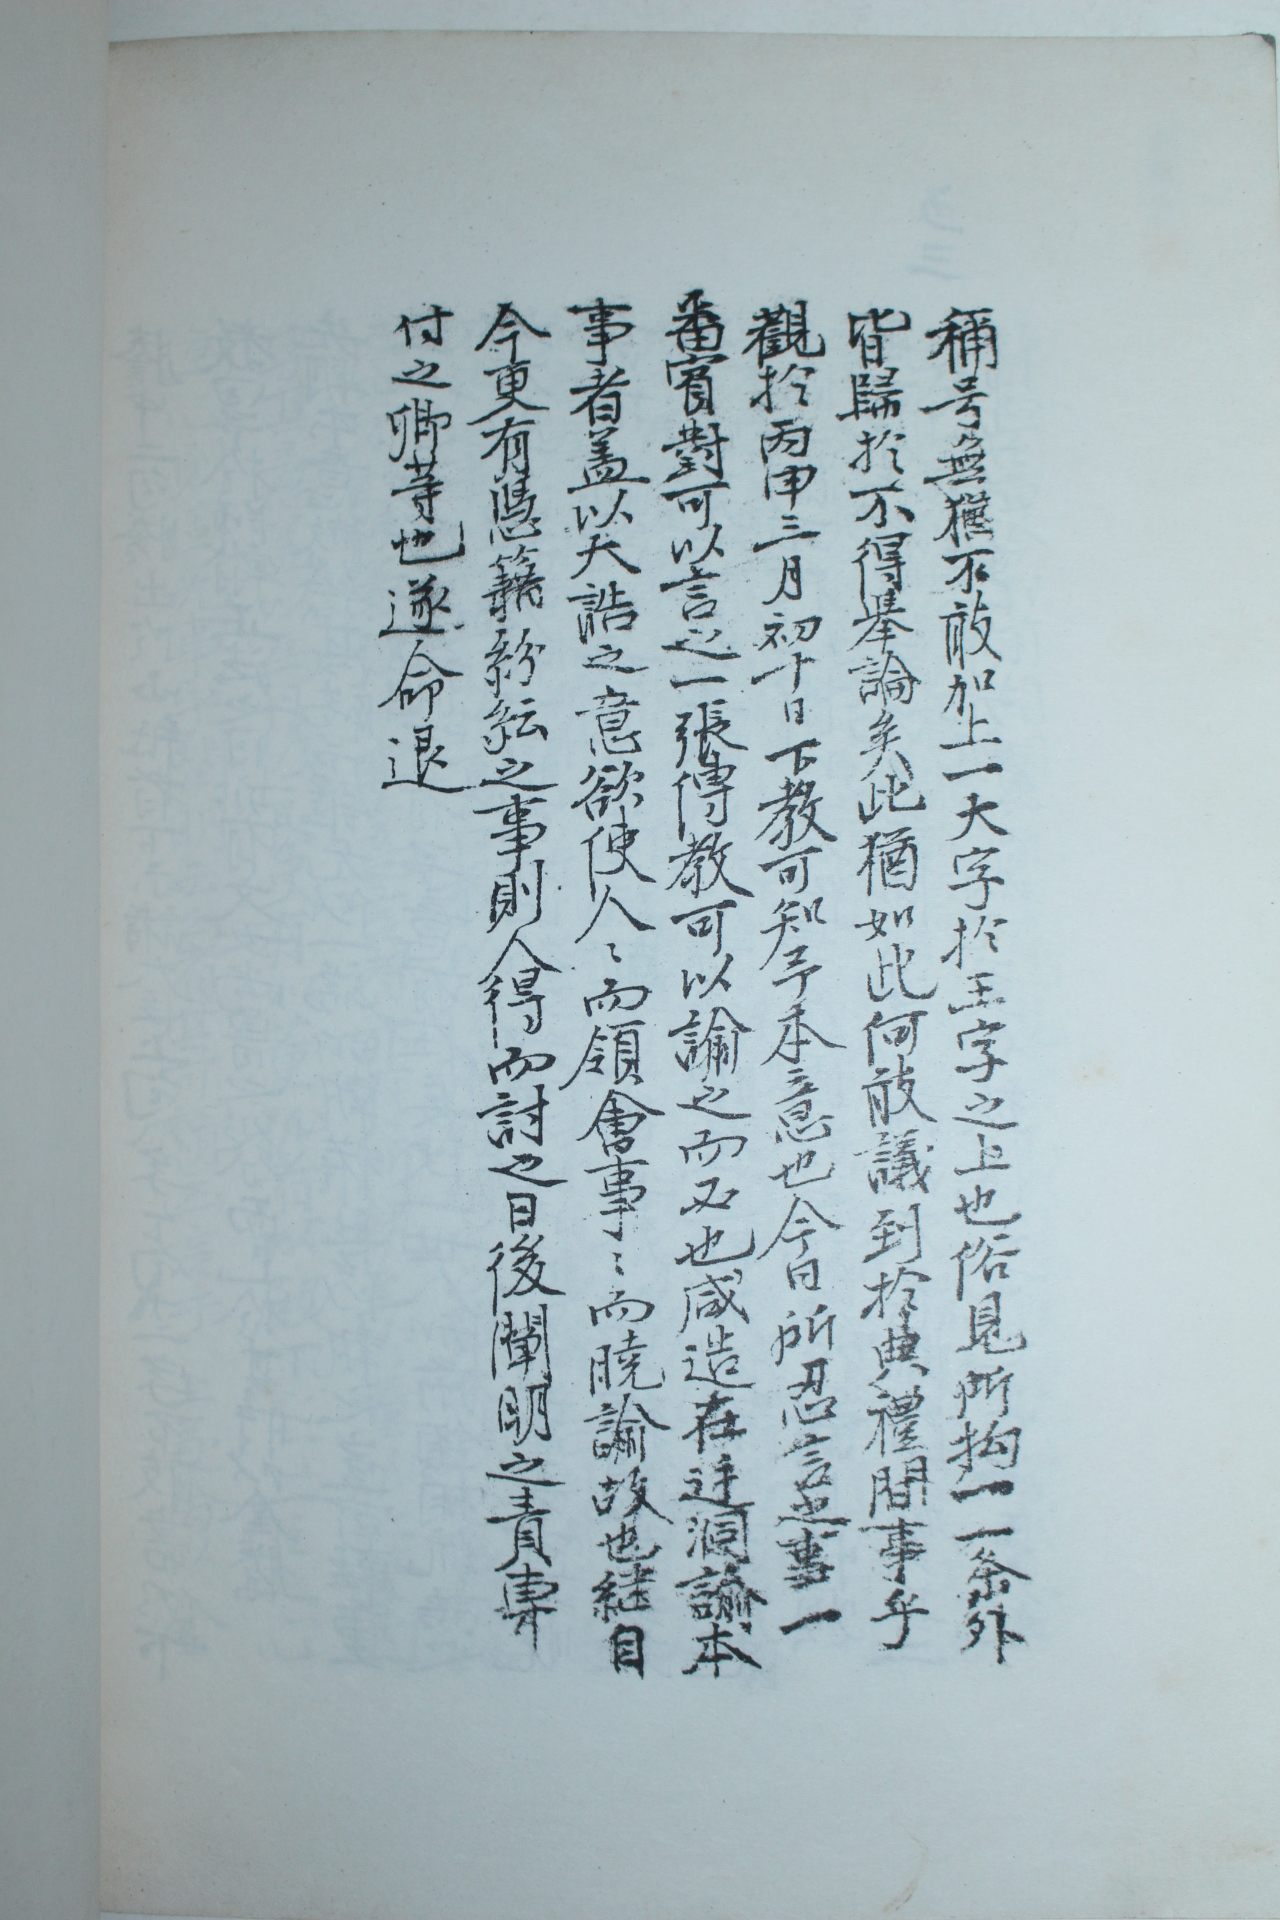 稱号無獵不敢加上一大字於王字之上也俗見所拘一一条外
皆歸於不得擧論矣此猶如此何敢議到於典禮間事乎
觀於丙申三月初十日下教可知予本意也今日所忍言之事一
番賓對可以言之一張傳教可以諭之而必也咸造在廷洞諭本
事者盖以大誥之意欲使人〻而領會事〻而曉諭故也継自
今更有憑籍紛紜之事則人得而討之日後闡明之責專
付之卿等也遂命退